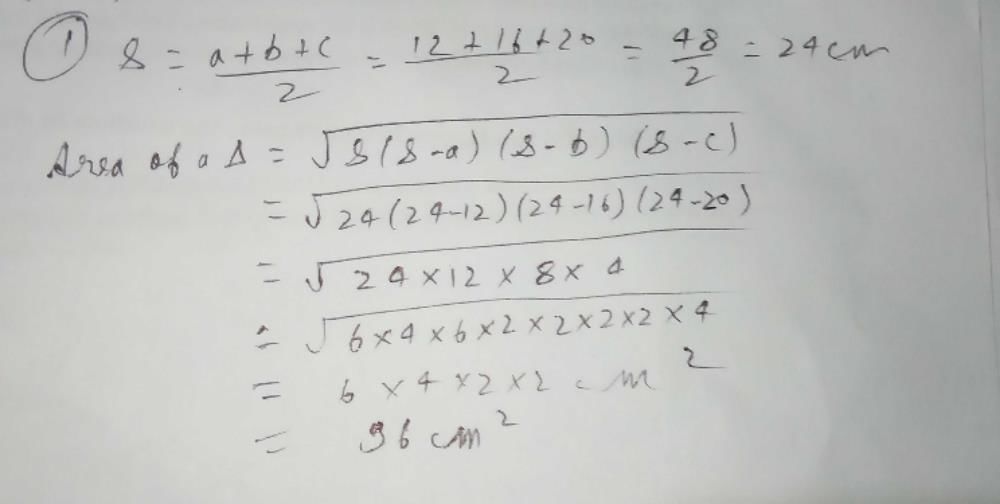 ① S = a+b+c/2 = 12+16+20/2 = 48/2 = 24cm
Area of a Δ = √S(S-a)(S-b)(S-c)
= √24(24-12)(24-16)(24-20)
= √24×12×8×4
= √6×4×6×2×2×2×2×4
= 6×4×2×2 cm²
= 96 cm²